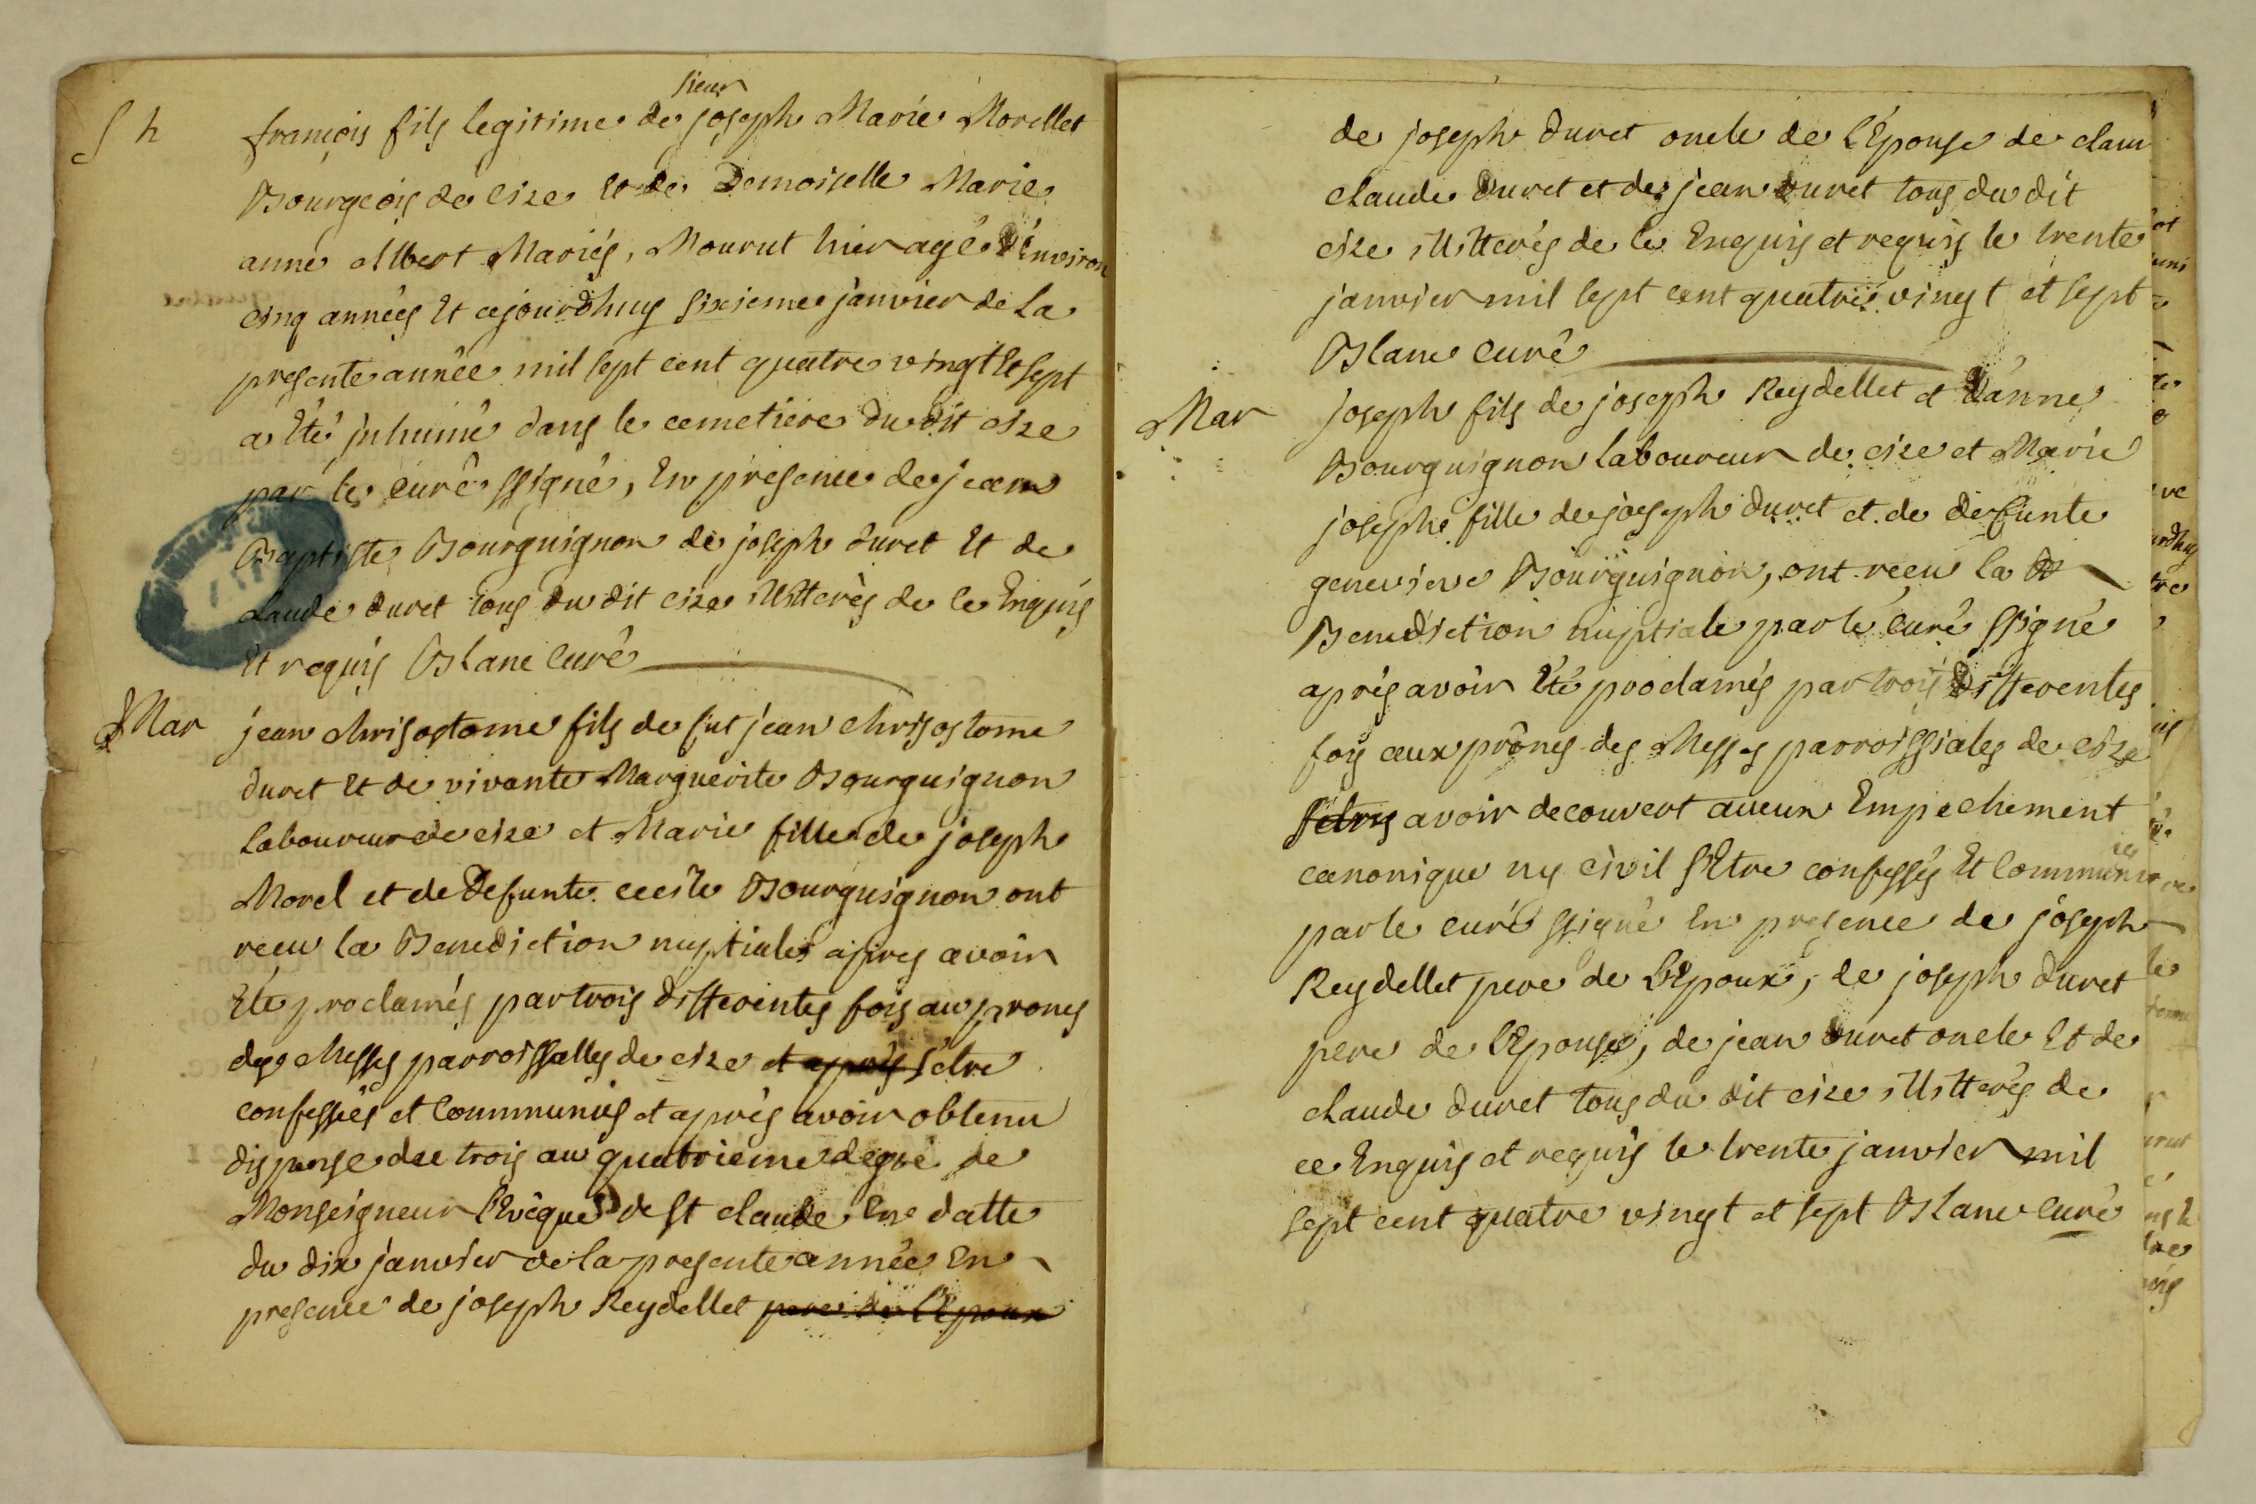 S h
sieur
françois fils legitime de joseph Marie Morellet
Bourgeois de cize et de Demoiselle Marie
anne Albert Mariés, Mourut hier agé d'Environ
cinq années Et cejourdhuy sixieme janvier de la
presente année mil sept cent quatre vingt Et sept
a Eté inhumé dans le cemetiere du dit cize
par le curé ssigné, En presence de jean
Baptiste Bourguignon de joseph duret Et de
claude duret tous du dit cize illitterés de ce Enquis
Et requis Blanc Curé
Mar
jean chrisostome fils de fut jean chrisostome
duret Et de vivante Marguerite Bourguignon
laboureur de cize et Marie fille de joseph
Morel et de Defunte cecile Bourguignon ont
receu la Benediction nuptiale apres avoir
Eté proclamés par trois differentes fois au prones
des Messes parroissialles de cize et après s'etre
confessés et Communiés et après avoir obtenu
dispense du trois au quatrieme degré de
Monseigneur l'Evêque de st claude En datte
du dix janvier de la presente année En
presence de joseph Reydellet pere de l'Epoux
de joseph duret oncle de l'Epouse de clau
claude duret et de jean duret tous du dit
cize illitterés de ce Enquis et requis le trente
janvier mil sept cent quatre vingt et sept
Blanc curé
Mar
joseph fils de joseph Reydellet et d'anne
Bourguignon laboureur de cize et Marie
josephe fille de joseph duret et de defunte
genevieve Bourguignon, ont receu la B
Benediction nuptiale par le curé ssigné
après avoir Eté proclamés par trois differentes
fois aux prônes des Messes parroissiales de cize
avoir decouvert aucun Empechement
canonique ny civil s'Etre confessés Et Communiés
par le curé ssigné En presence de joseph
Reydellet pere de l'Epoux, de joseph duret
pere de l'Epouse, de jean duret oncle Et de
claude duret tous du dit cize illitterés de
ce Enquis et requis le trente janvier mil
sept cent quatre vingt et sept Blanc Curé